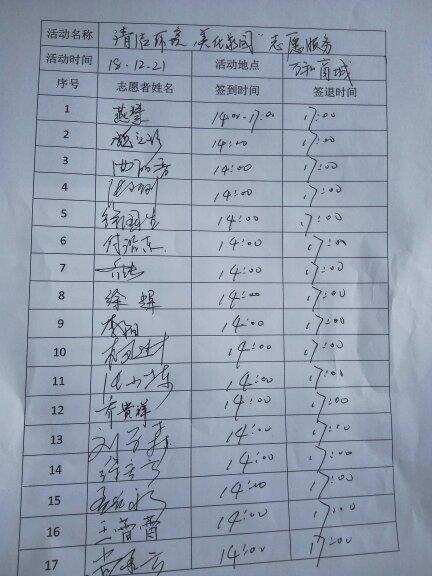 活动名称 "清洁环境 美化家园"志愿服务
活动时间 18.12.21 活动地点 万和商城
序号 志愿者姓名 签到时间 签退时间
1 燕慧 14:00-17:00 17:00
2 14:00 17:00
3 14:00 17:00
4 14:00 17:00
5 徐国生 14:00 17:00
6 付浩杰 14:00 17:00
7 14:00 17:00
8 徐辉 14:00 17:00
9 李阳 14:00 17:00
10 14:00 17:00
11 14:00 17:00
12 乔贵祥 14:00 17:00
13 14:00 17:00
14 14:00 17:00
15 14:00 17:00
16 王蕾蕾 14:00 17:00
17 14:00 17:00